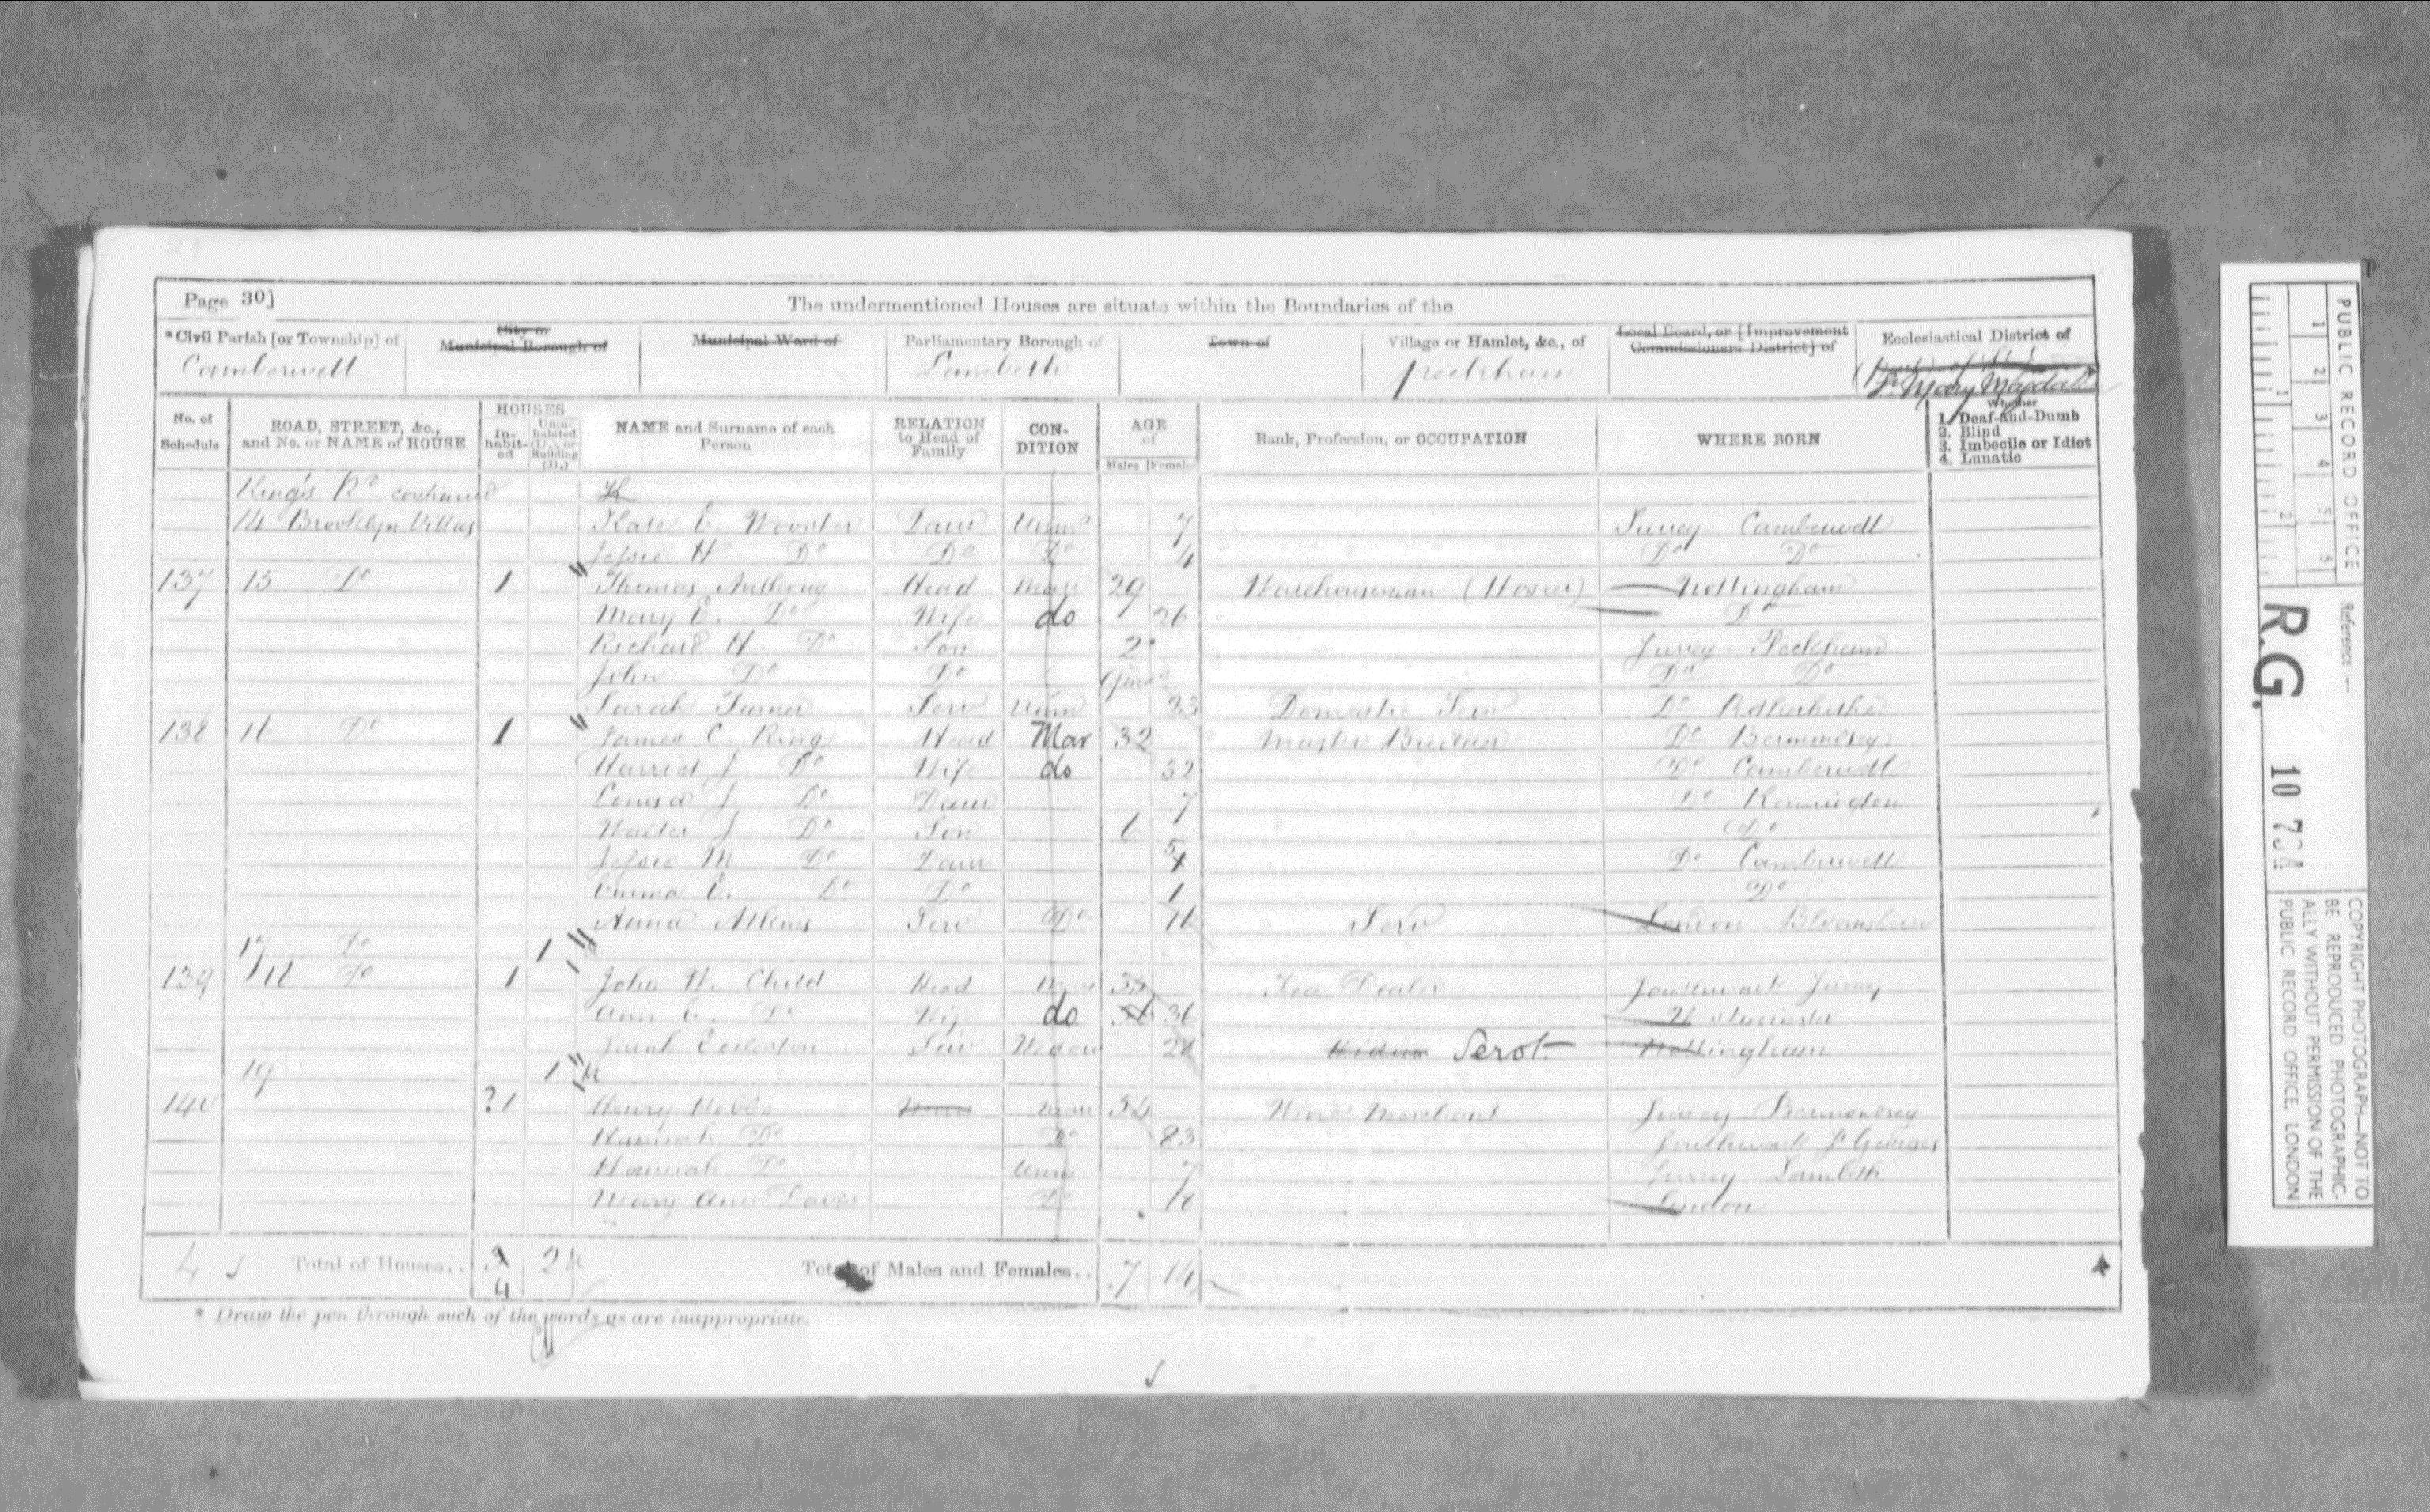 Page 30]
The undermentioned Houses are situate within the Boundaries of the
*Civil Parish [or Township] of
Camberwell
City or Municipal Borough of
Municipal Ward of
Parliamentary Borough of
Lambeth
Town of
Village or Hamlet, &c., of
Peckham
Local Board, or [Improvement Commissioners District] of
Ecclesiastical District of
St. Mary Magdal
No. of Schedule
ROAD, STREET, &c., and No. or NAME of HOUSE
HOUSES
Inhabited
Uninhabited (U.), or Building (B.)
NAME and Surname of each Person
RELATION to Head of Family
CONDITION
AGE of
Males Females
Rank, Profession, or OCCUPATION
WHERE BORN
Whether
1. Deaf-and-Dumb
2. Blind
3. Imbecile or Idiot
4. Lunatic
King's Rd continued
14 Brooklyn Villas Kate E. Wooster Daur Unmd 7 Surrey Camberwell
Jessie H Do Do Do 4 Do Do
137 15 Do 1 Thomas Anthony Head Mar 29 Warehouseman (Hosier) Nottingham
Mary E. Do Wife do 26 Do
Richard H Do Son 2 Surrey Peckham
John Do Do 9mos Do Do
Sarah Turner Serv Unm 23 Domestic Serv Do Rotherhithe
138 16 Do 1 James C. King Head Mar 32 Master Builder Do Bermondsey
Harriet J Do Wife do 32 Do Camberwell
Louisa J Do Daur 7 Do Kennington
Walter J Do Son 6 Do
Jessie M Do Daur 5 Do Camberwell
Emma E. Do Do 1 Do
Anna Atkins Serv Do 16 Serv London
17 Do 1
139 18 Do 1 John W. Child Head Mar Tea Dealer Southwark Surrey
Ann E. Do Wife do 36 Westminster
Sarah Serv Widow 28 Widow Servt Nottingham
19 1 U
140 ?1 Henry Hobbs Mar 34 Wine Merchant Surrey Bermondsey
Hannah Do Do Southwark St Georges
Hannah Do Unm 7 Surrey Lambeth
Mary Ann Davis Do 18 London
4 Total of Houses.. 3 4 2 Total of Males and Females.. 7 14
* Draw the pen through such of the words as are inappropriate.
PUBLIC RECORD OFFICE
1 2 3 4 5 6
1 2
Reference —
R.G. 10 734
COPYRIGHT PHOTOGRAPH—NOT TO
BE REPRODUCED PHOTOGRAPHIC-
ALLY WITHOUT PERMISSION OF THE
PUBLIC RECORD OFFICE, LONDON